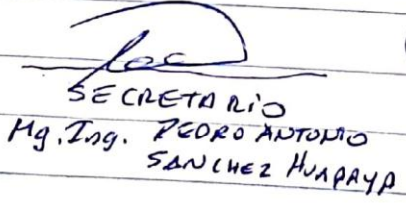 SECRETARIO
Mg. Ing. PEDRO ANTONIO
SANCHEZ HUAPAYA